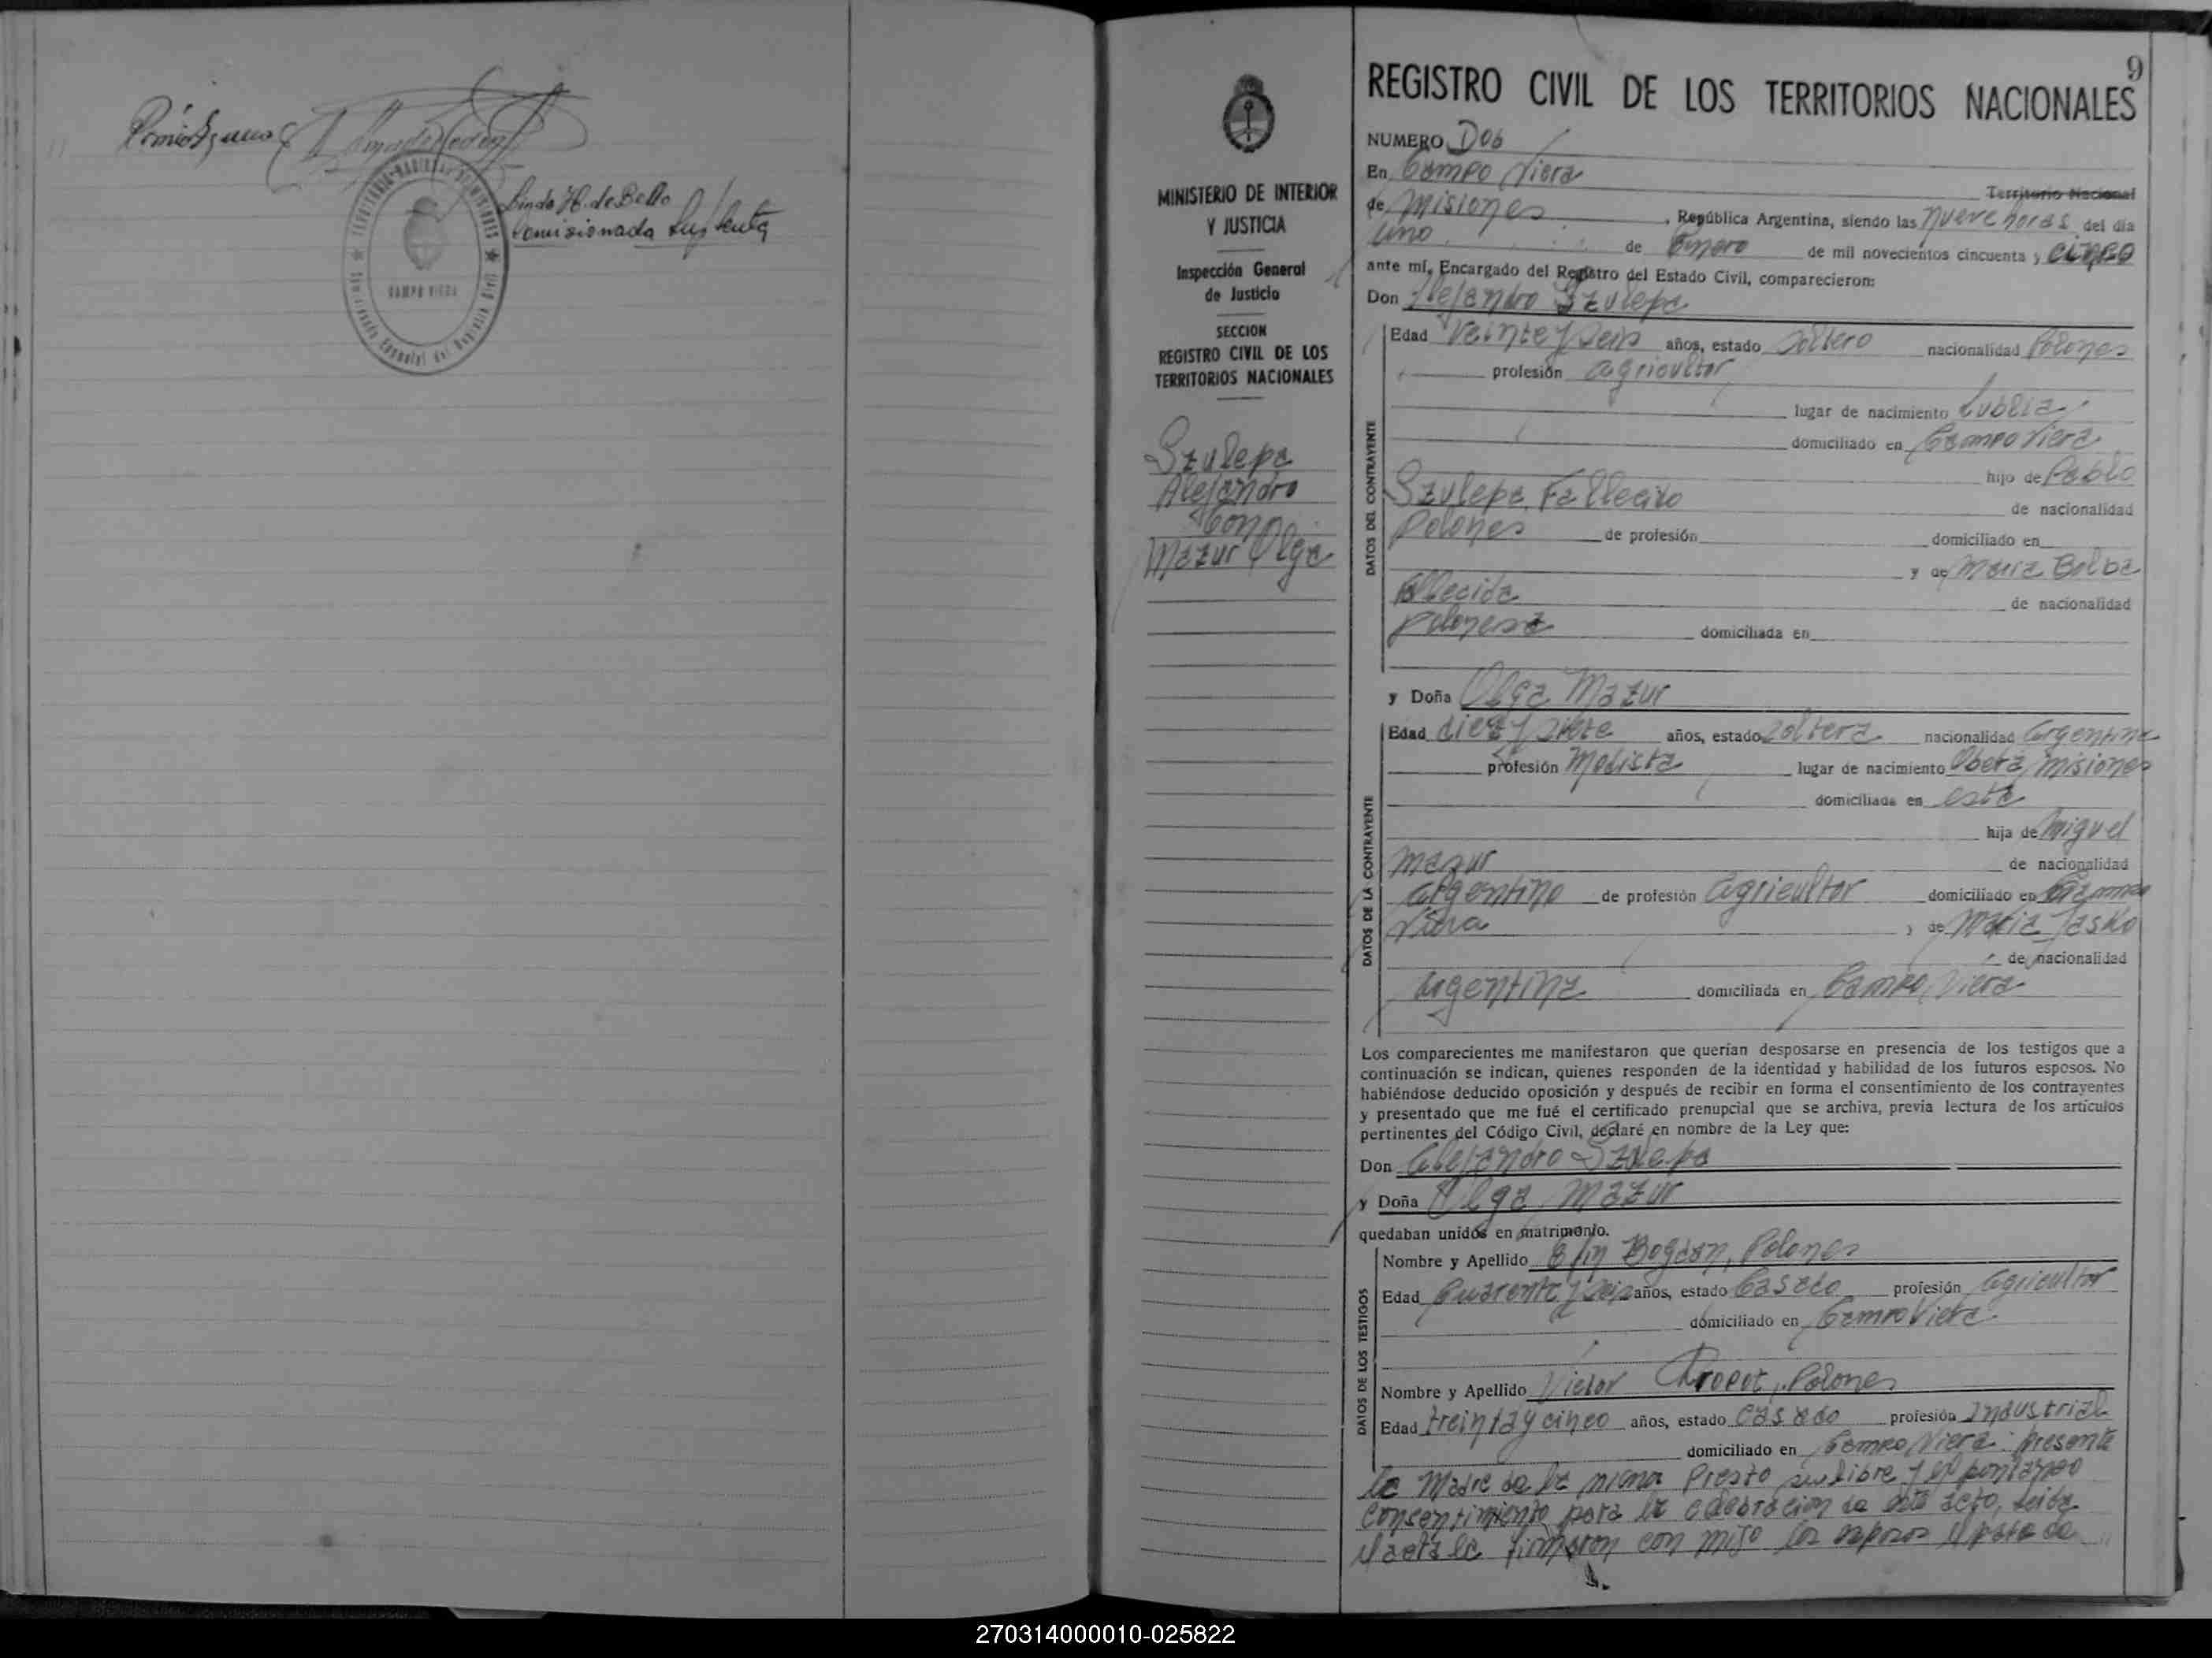 Linda H. de Bello
Comisionada Suplente
CAMPO VIERA
9
MINISTERIO DE INTERIOR
Y JUSTICIA
Inspección General
de Justicia
SECCION
REGISTRO CIVIL DE LOS
TERRITORIOS NACIONALES
Szulepa
Alejandro
Con
Mazur Olga
REGISTRO CIVIL DE LOS TERRITORIOS NACIONALES
NUMERO Dos
En Campo Viera
Territorio Nacional
de Misiones, República Argentina, siendo las nueve horas del día
uno de Enero de mil novecientos cincuenta y cinco
ante mí, Encargado del Registro del Estado Civil, comparecieron:
Don Alejandro Szulepa
DATOS DEL CONTRAYENTE
Edad Veinte y seis años, estado soltero nacionalidad Polones
profesión agricultor
lugar de nacimiento
domiciliado en Campo Viera
hijo de Pablo
Szulepa, Fallecido de nacionalidad
Polones de profesión domiciliado en
y de Maria
Fallecida de nacionalidad
polonesa domiciliada en
y Doña Olga Mazur
DATOS DE LA CONTRAYENTE
Edad diez y siete años, estado soltera nacionalidad argentina
profesión Modista lugar de nacimiento Oberá, Misiones
domiciliada en esta
hija de Miguel
Mazur de nacionalidad
argentino de profesión agricultor domiciliado en Campo
Viera y de Maria Jasko
de nacionalidad
argentina domiciliada en Campo Viera
Los comparecientes me manifestaron que querían desposarse en presencia de los testigos que a
continuación se indican, quienes responden de la identidad y habilidad de los futuros esposos. No
habiéndose deducido oposición y después de recibir en forma el consentimiento de los contrayentes
y presentado que me fué el certificado prenupcial que se archiva, previa lectura de los artículos
pertinentes del Código Civil, declaré en nombre de la Ley que:
Don Alejandro Szulepa
y Doña Olga Mazur
quedaban unidos en matrimonio.
DATOS DE LOS TESTIGOS
Nombre y Apellido Bogdan, Polones
Edad Cuarenta y seis años, estado Casado profesión agricultor
domiciliado en Campo Viera
Nombre y Apellido Victor Polones
Edad treinta y cinco años, estado casado profesión Industrial
domiciliado en Campo Viera. Presente
la Madre de la Presto su libre y
consentimiento para la celebracion de este acto, leida
el acta la firmaron con migo los esposos
270314000010-025822